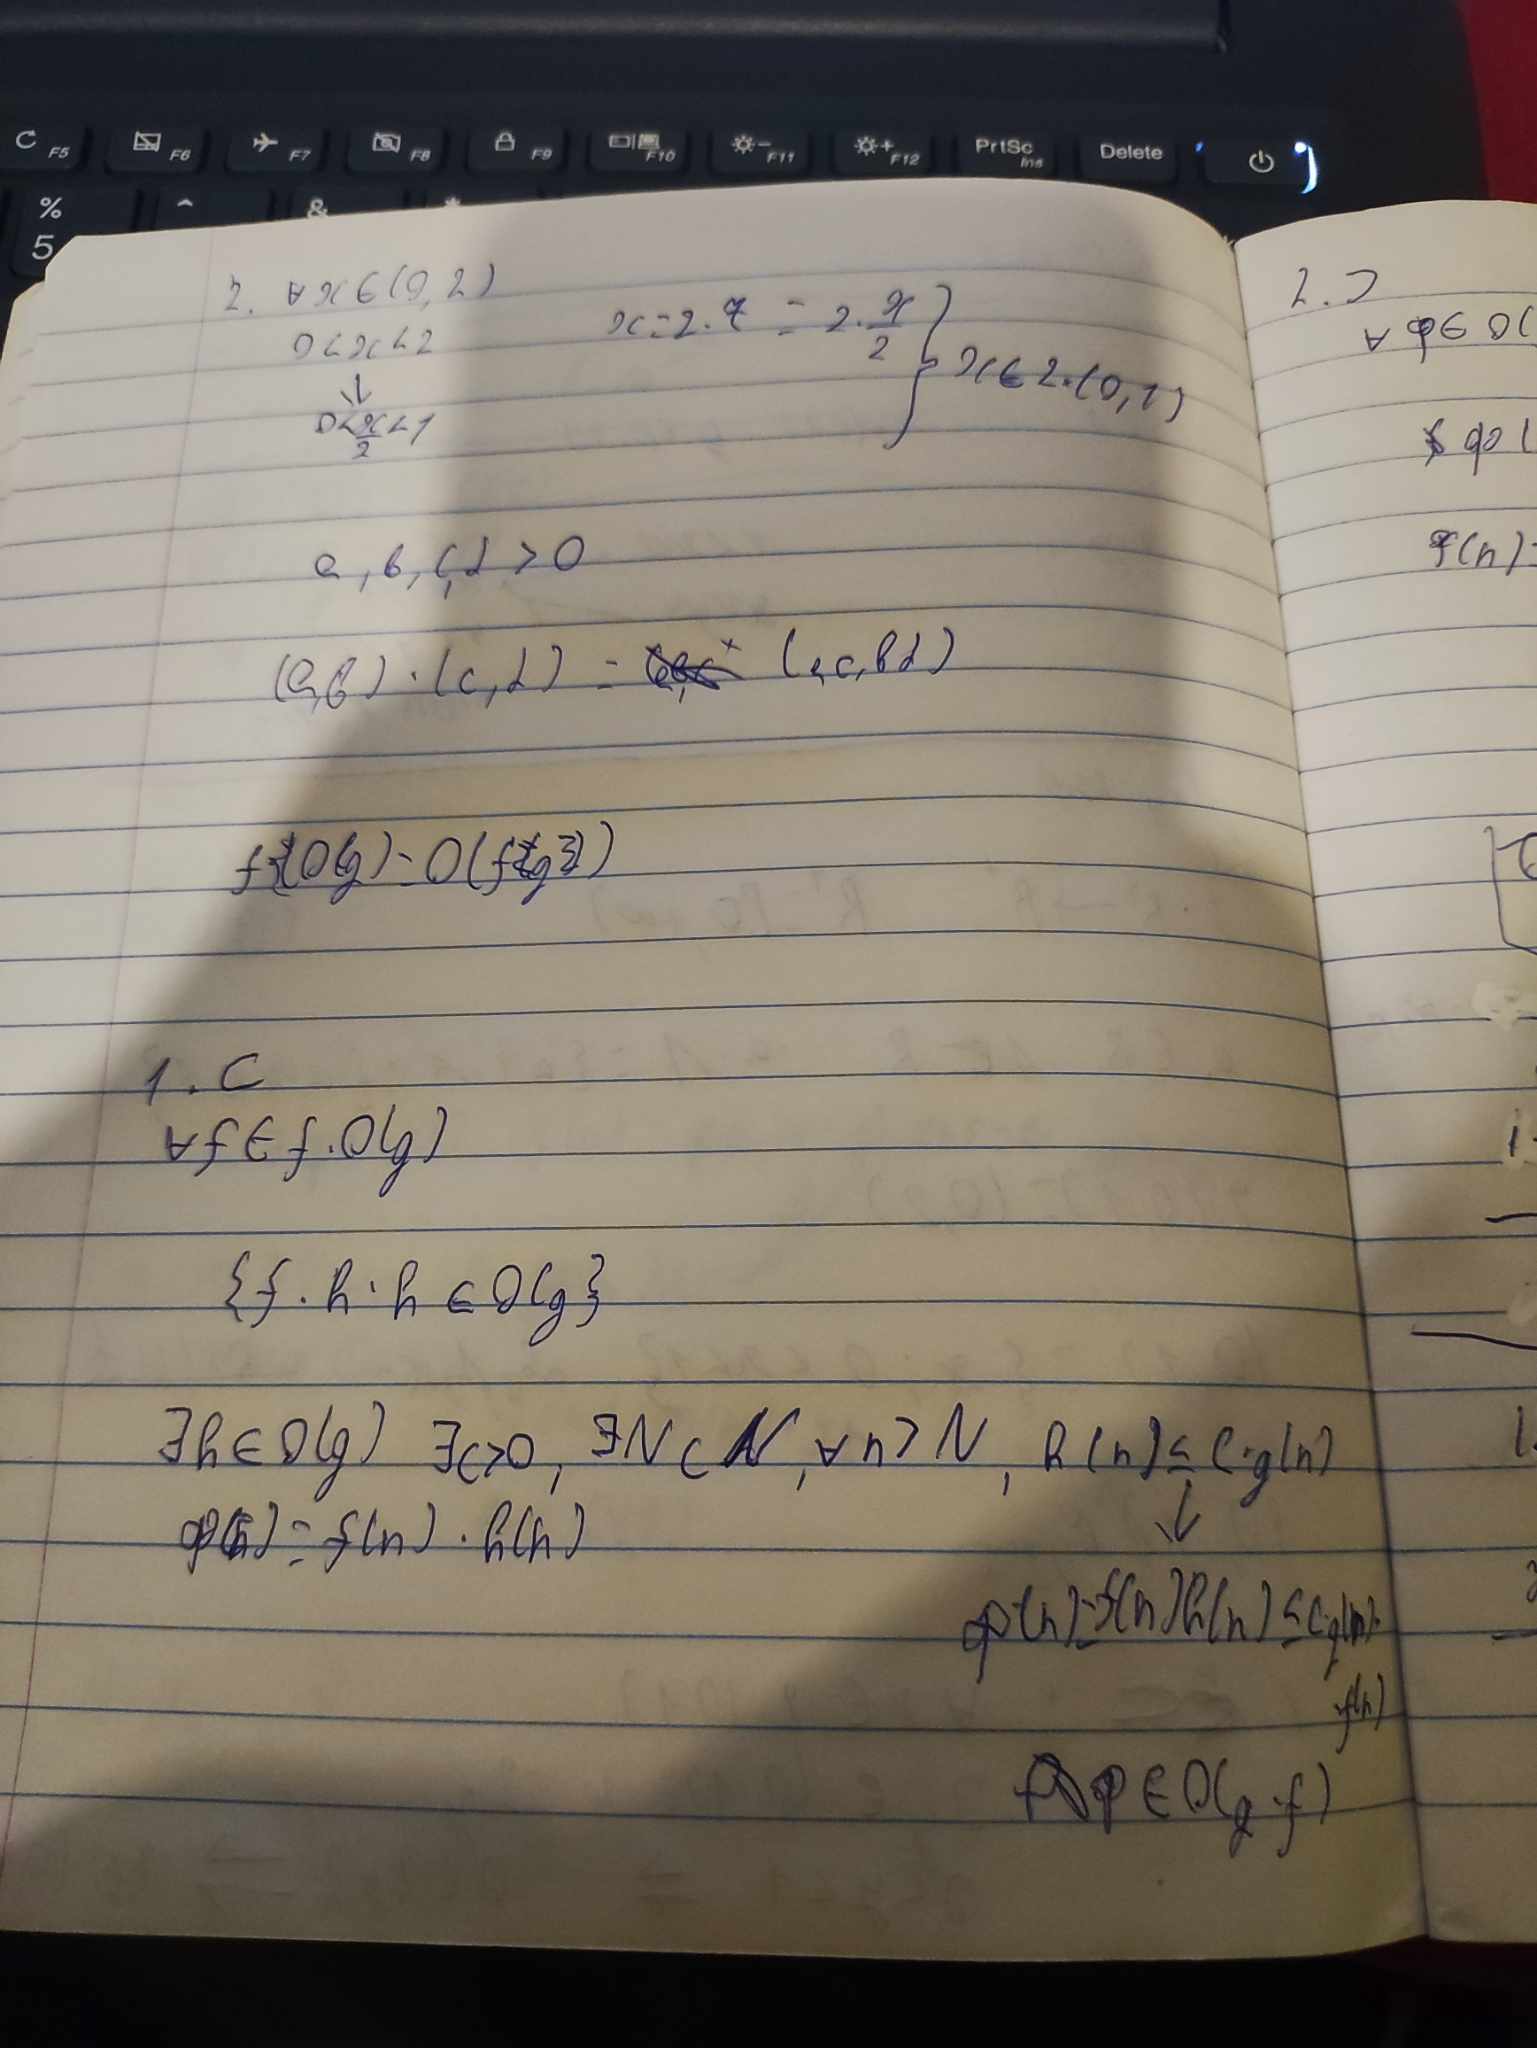 F5 F6 F7 F8 F9 F10 F11 F12 PrtSc Ins Delete
% ^ & *
5
2. ∀x∈(0,2)
0<x<2
↓
0<x/2<1
x=2·z = 2·x/2 } x∈2·(0,1)
a,b,c,d>0
(a,b)·(c,d) = (ac,bd)
f·O(g)=O(f·{g})
1. ⊂
∀f∈f·O(g)
{f·h:h∈O(g}
∃h∈O(g) ∃c>0, ∃N⊂N, ∀n>N, h(n)≤c·g(n)
φ(n)=f(n)·h(n)
↓
φ(n)=f(n)h(n)≤c·g(n)·
f(n)
φ∈O(g·f)
2. ⊃
∀φ∈O(
φ(
f(n)=